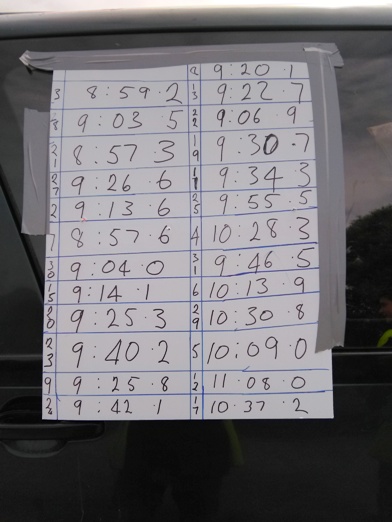 9:20·1
3 8:59·2 13 9:22·7
8 9:03·5 22 9:06·9
21 8:57·3 19 9:30·7
27 9:26·6 11 9:34·3
2 9:13·6 25 9:55·5
7 8:57·6 4 10:28·3
30 9:04·0 31 9:46·5
15 9:14·1 6 10:13·9
20 9:25·3 29 10:30·8
23 9:40·2 5 10:09·0
9 9:25·8 12 11:08·0
9:42·1 17 10:37·2